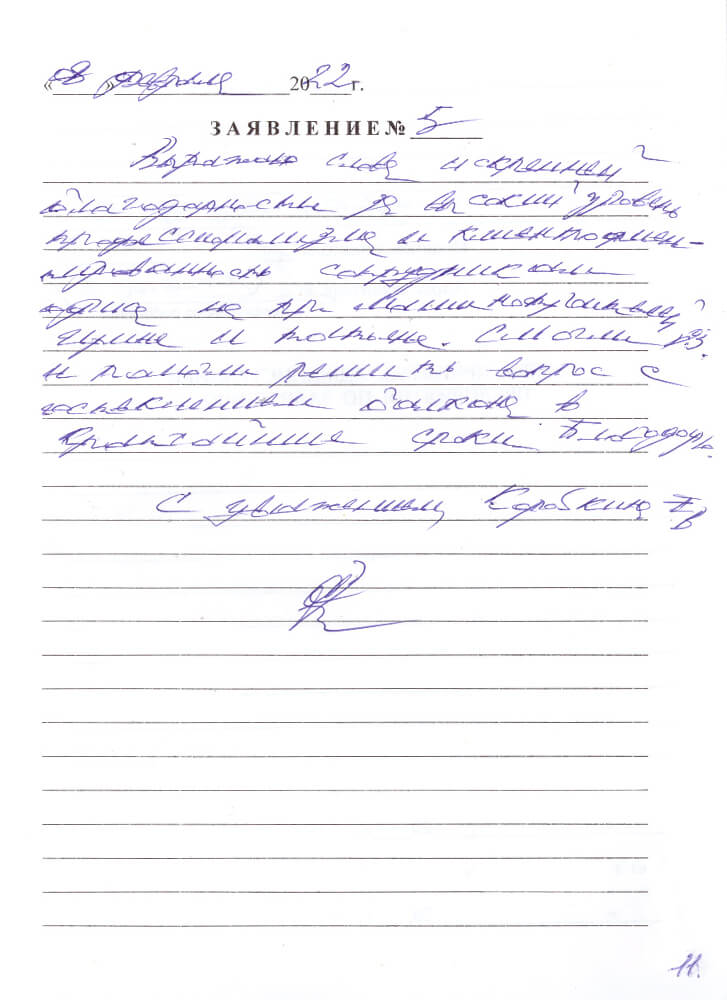 « 8 » февраля 2022 г.
ЗАЯВЛЕНИЕ № 5
Выражаю слова искренней
благодарности за высокий уровень
профессионализма и клиентоориен-
тированность сотрудникам
офиса на пр
Ирине и Татьяне. Смогли
и помогли решить вопрос с
остеклением балкона в
кратчайшие сроки. Благодарю.
С уважением, Коробкина Т.В
11.